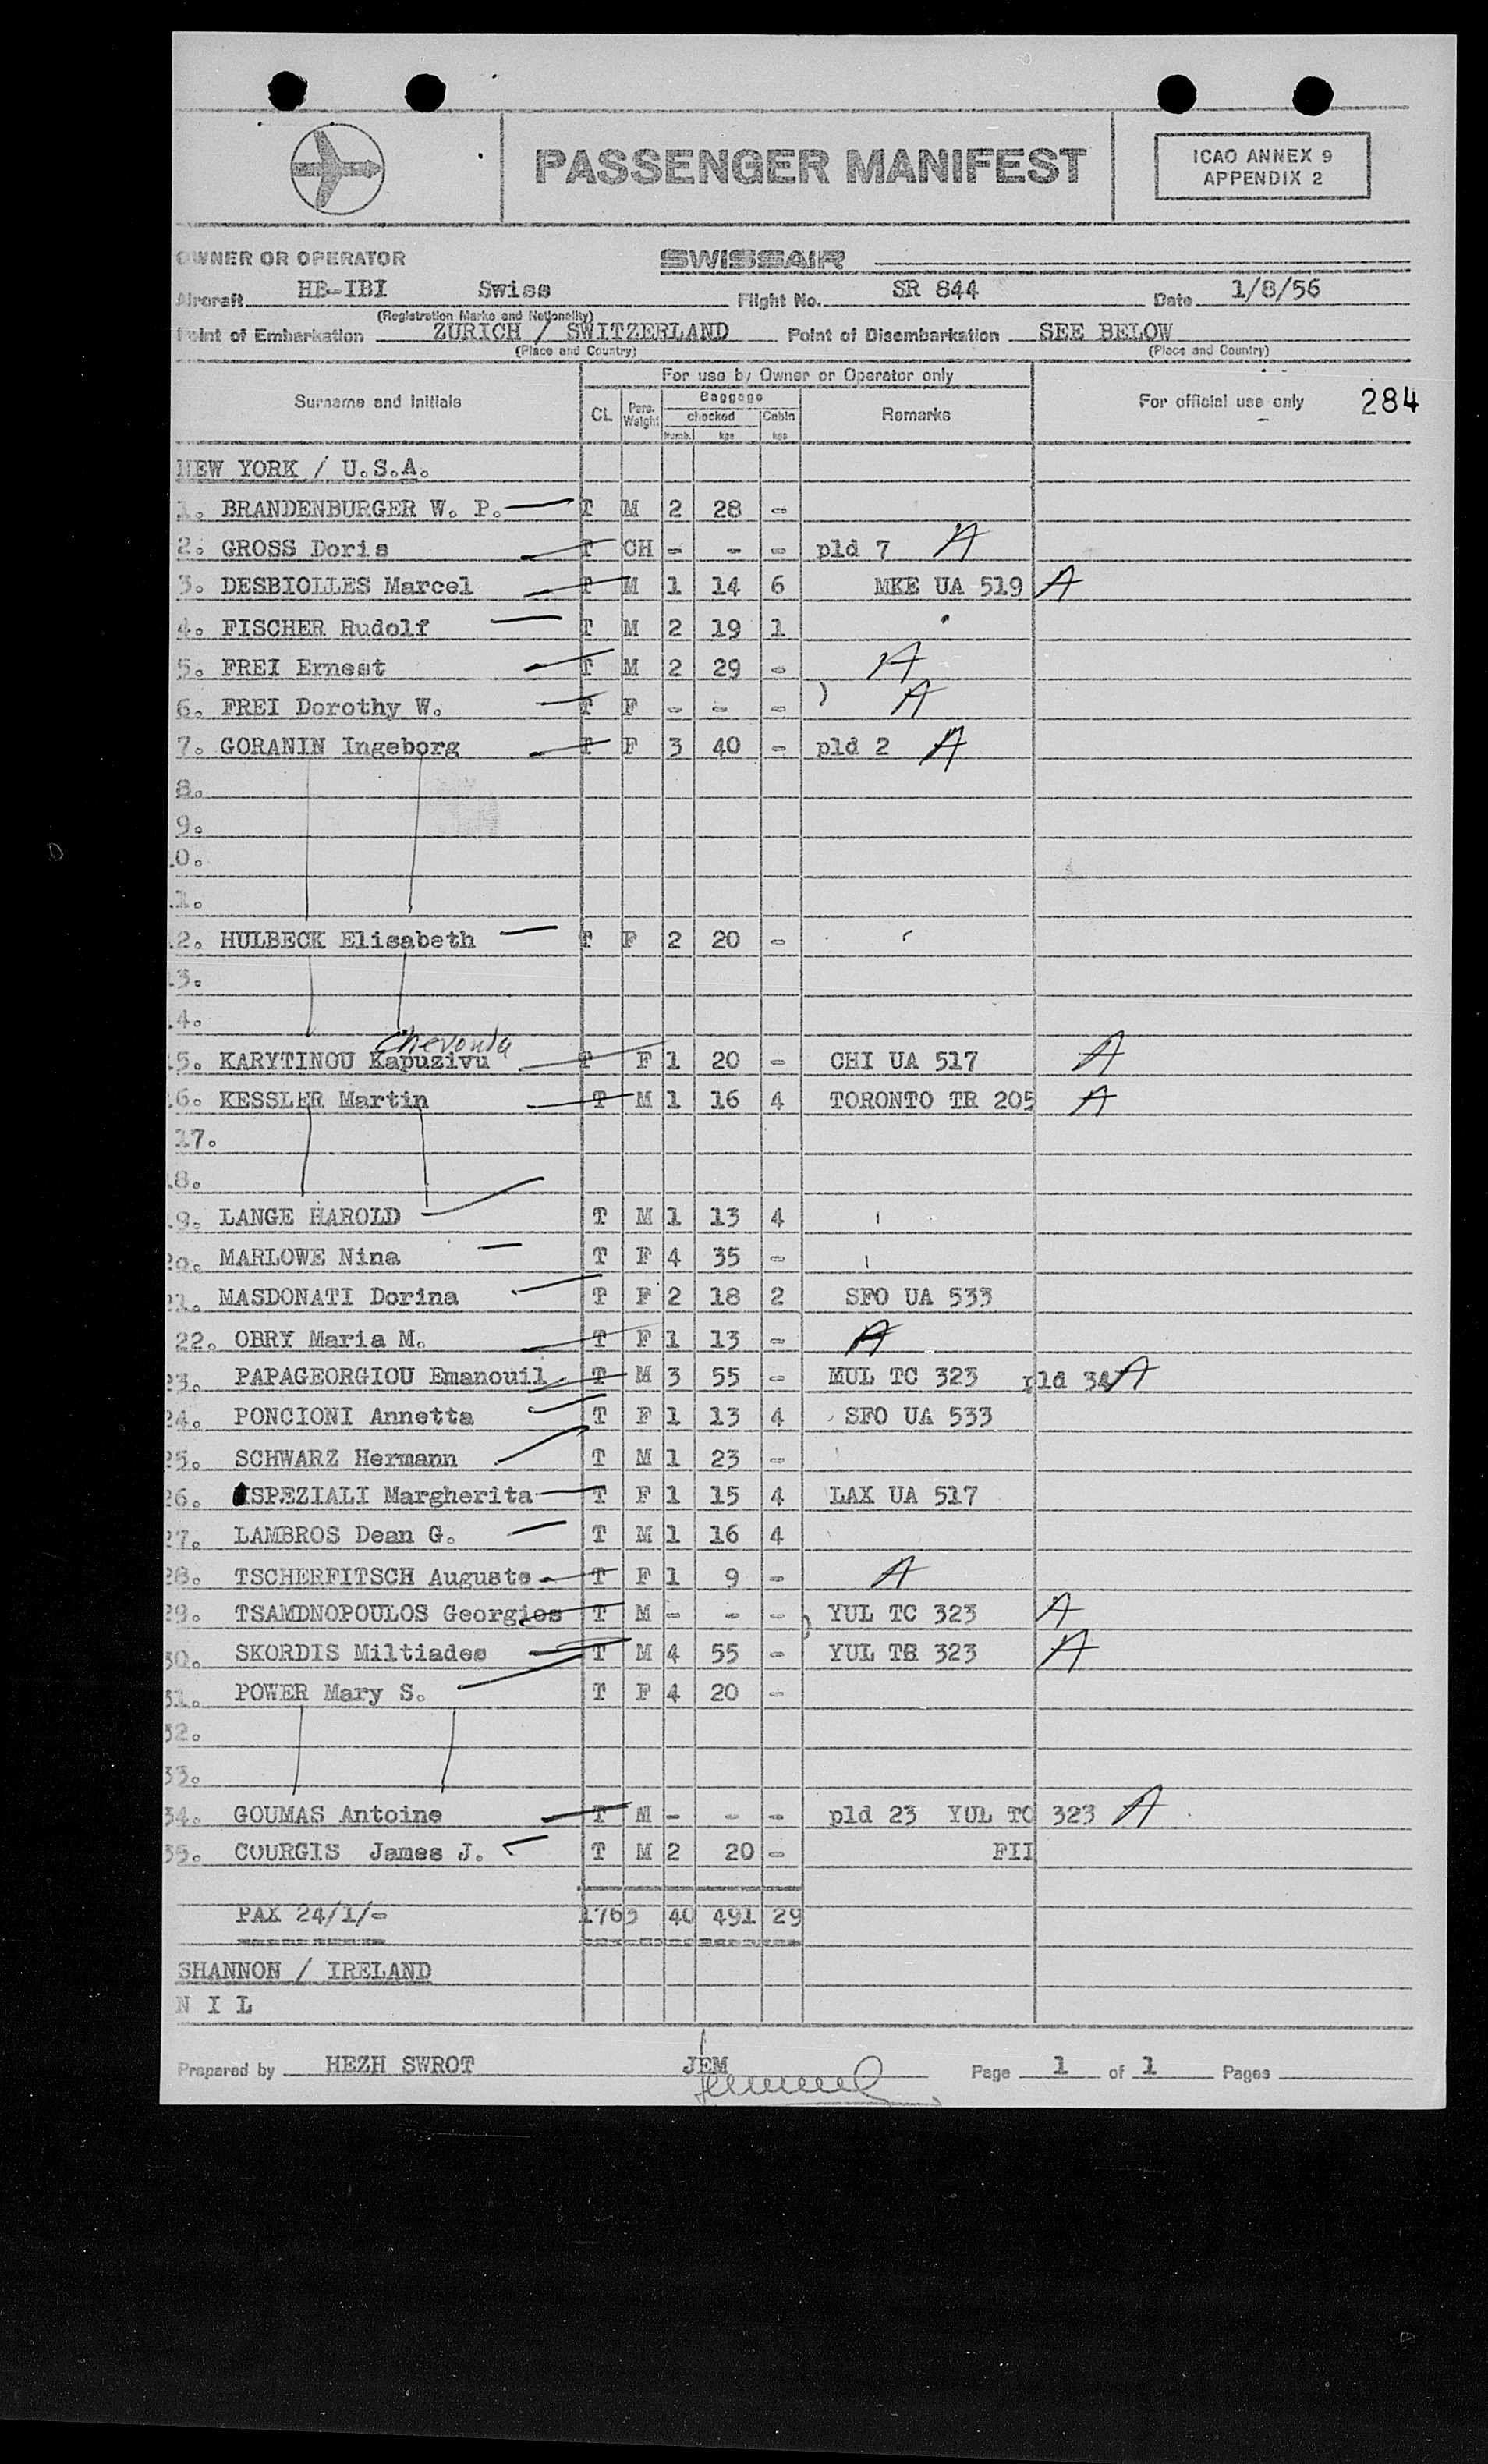 PASSENGER MANIFEST
ICAO ANNEX 9
APPENDIX 2
OWNER OR OPERATOR SWISSAIR
Aircraft HB-IBI Swiss Flight No. SR 844 Date 1/8/56
(Registration Marks and Nationality)
Point of Embarkation ZURICH / SWITZERLAND Point of Disembarkation SEE BELOW
(Place and Country) (Place and Country)
For use by Owner or Operator only
Surname and Initials CL Pers. Weight Baggage checked Cabin Remarks For official use only 284
Numb. kgs kgs
NEW YORK / U.S.A.
1. BRANDENBURGER W. P. T M 2 28 -
2. GROSS Doris T CH - - - pld 7 A
3. DESBIOLLES Marcel T M 1 14 6 MKE UA 519 A
4. FISCHER Rudolf T M 2 19 1
5. FREI Ernest T M 2 29 - A
6. FREI Dorothy W. T F - - - ) A
7. GORANIN Ingeborg T F 3 40 - pld 2 A
8.
9.
0.
1.
2. HULBECK Elisabeth T F 2 20 -
3.
4.
Chevoula
5. KARYTINOU Kapuzivu T F 1 20 - CHI UA 517 A
6. KESSLER Martin T M 1 16 4 TORONTO TR 205 A
17.
8.
9. LANGE HAROLD T M 1 13 4
20. MARLOWE Nina T F 4 35 -
21. MASDONATI Dorina T F 2 18 2 SFO UA 533
22. OBRY Maria M. T F 1 13 - A
23. PAPAGEORGIOU Emanouil T M 3 55 - MUL TC 323 pld 34 A
24. PONCIONI Annetta T F 1 13 4 SFO UA 533
25. SCHWARZ Hermann T M 1 23 -
26. SPEZIALI Margherita T F 1 15 4 LAX UA 517
27. LAMBROS Dean G. T M 1 16 4
28. TSCHERFITSCH Auguste T F 1 9 - A
29. TSAMDNOPOULOS Georgios T M - - - ) YUL TC 323 A
30. SKORDIS Miltiades T M 4 55 - YUL TR 323 A
31. POWER Mary S. T F 4 20 -
32.
33.
34. GOUMAS Antoine T M - - - pld 23 YUL TC 323 A
35. COURGIS James J. T M 2 20 - FII
PAX 24/1/- 1763 40 491 29
SHANNON / IRELAND
N I L
Prepared by HEZH SWROT JEM Page 1 of 1 Pages